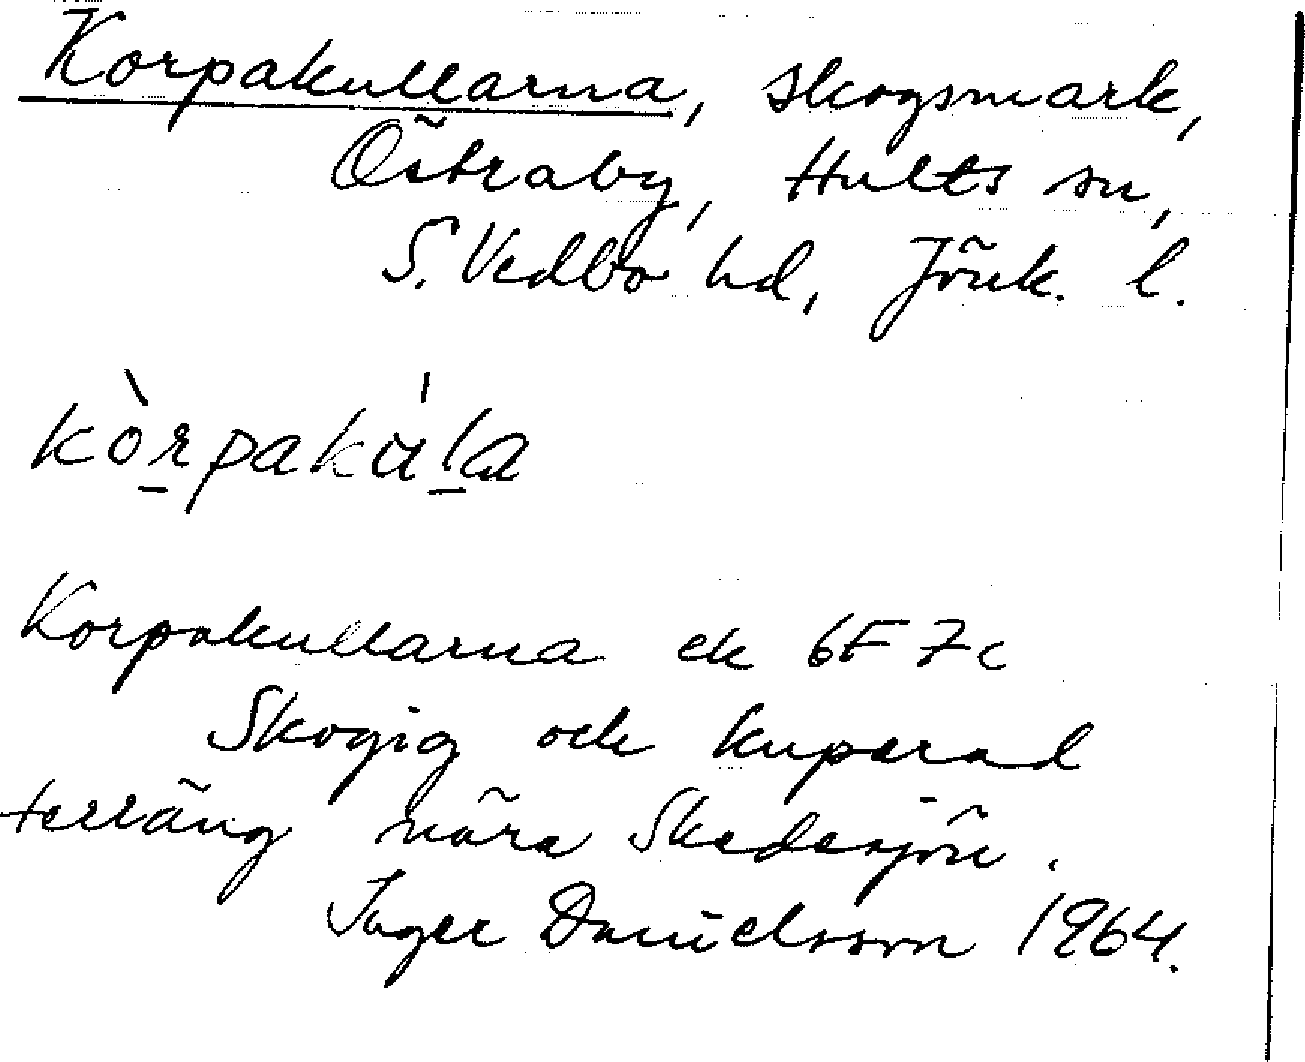 Korpakullarna, skogsmark,
Östraby, Hults sn,
S. Vedbo hd, Jönk. l.
kòr̲pakùl̲a
Korpakullarna ek 6F 7c
Skogig och kuperad
terräng nära Skedesjön.
Inger Danielsson 1964.